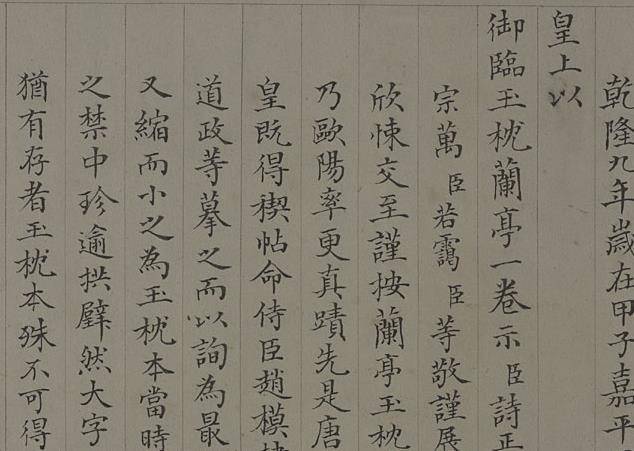 乾隆九年歲在甲子嘉平
皇上以
御臨玉枕蘭亭一卷示臣詩正
宗萬臣若靄臣等敬謹展
欣悚交至謹按蘭亭玉枕
乃歐陽率更真蹟先是唐
皇既得稧帖命侍臣趙模
道政等摹之而以詢為最
又縮而小之為玉枕本當時
之禁中珍逾拱璧然大字
猶有存者玉枕本殊不可得